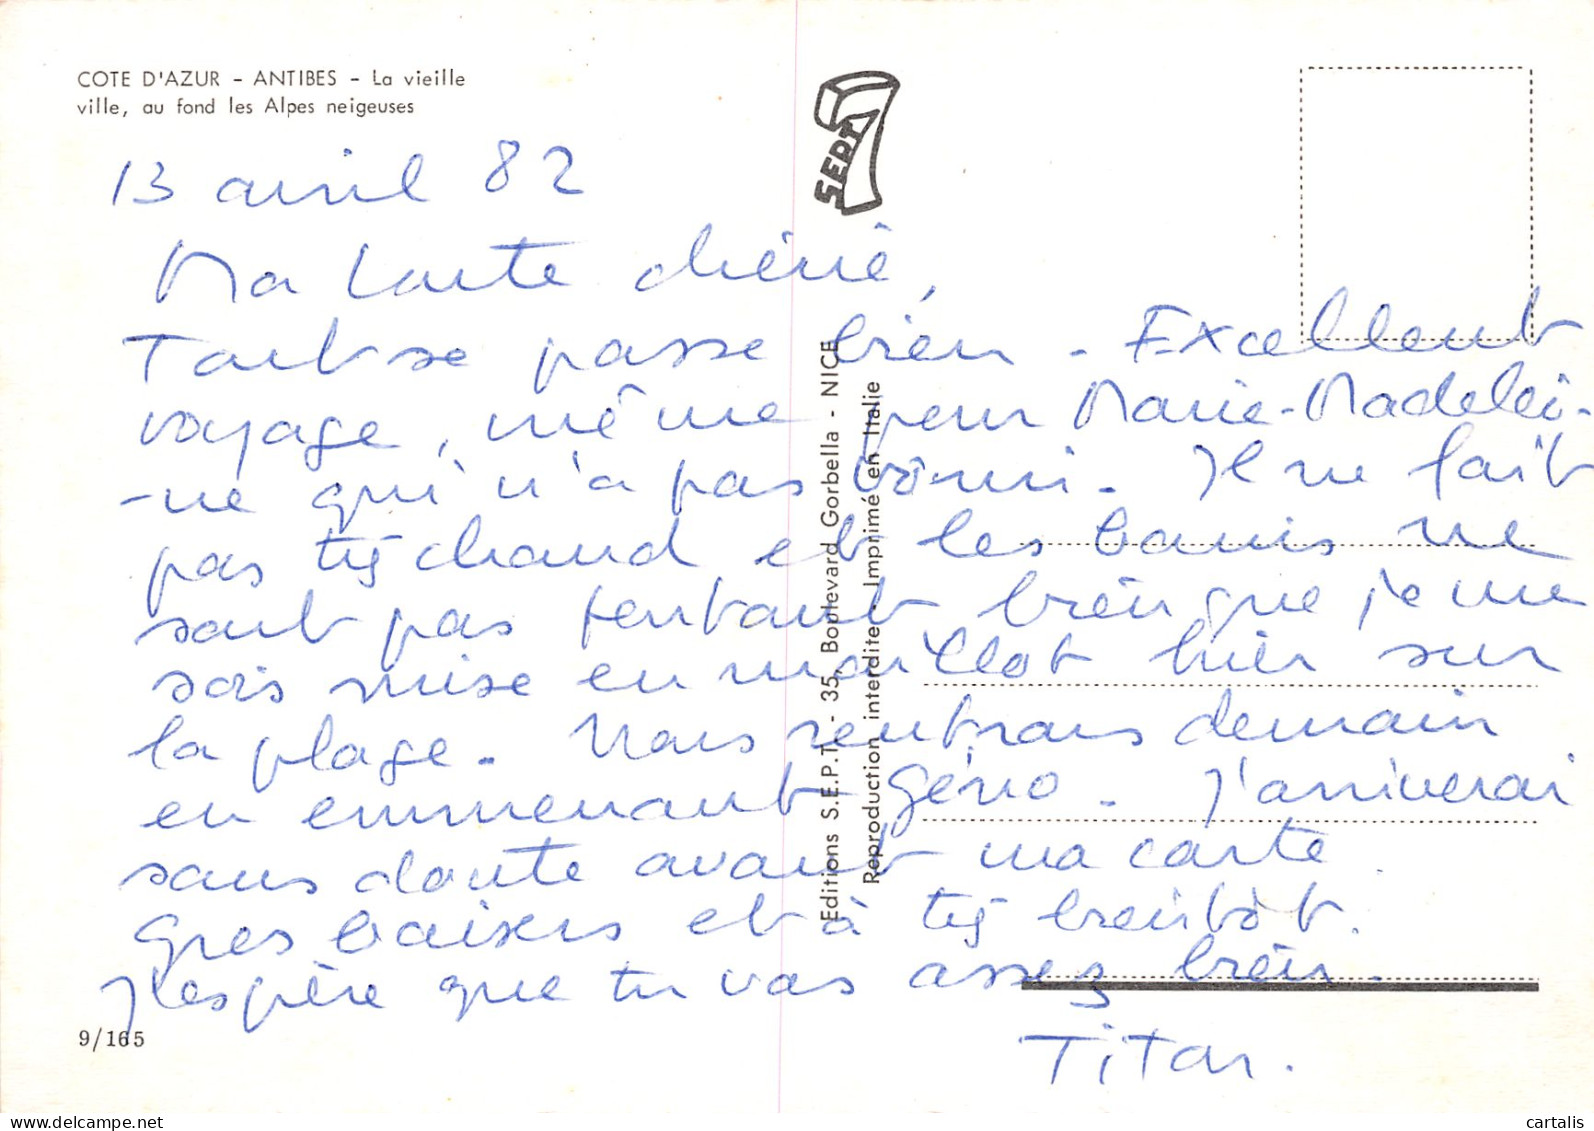 COTE D'AZUR - ANTIBES - La vieille
ville, au fond les Alpes neigeuses
13 avril 82
Ma tante chérie,
Tout se passe bien - Excellent
voyage, même pour Marie-Madelei-
-ne qui n'a pas vômi. Il ne fait
pas très chaud et les bains ne
sont pas tentant bien que je me
sois mise en maillot hier sur
la plage. Nous rentrons demain
en emmenant Géno. J'arriverai
sans doute avant ma carte.
Gros baisers et à très bientôt.
J'espère que tu vas assez bien.
Titan.
9/165
SEPT
Editions S.E.P.T. - 35, Boulevard Gorbella - NICE
Reproduction interdite - Imprimé en Italie
delcampe.net
cartalis